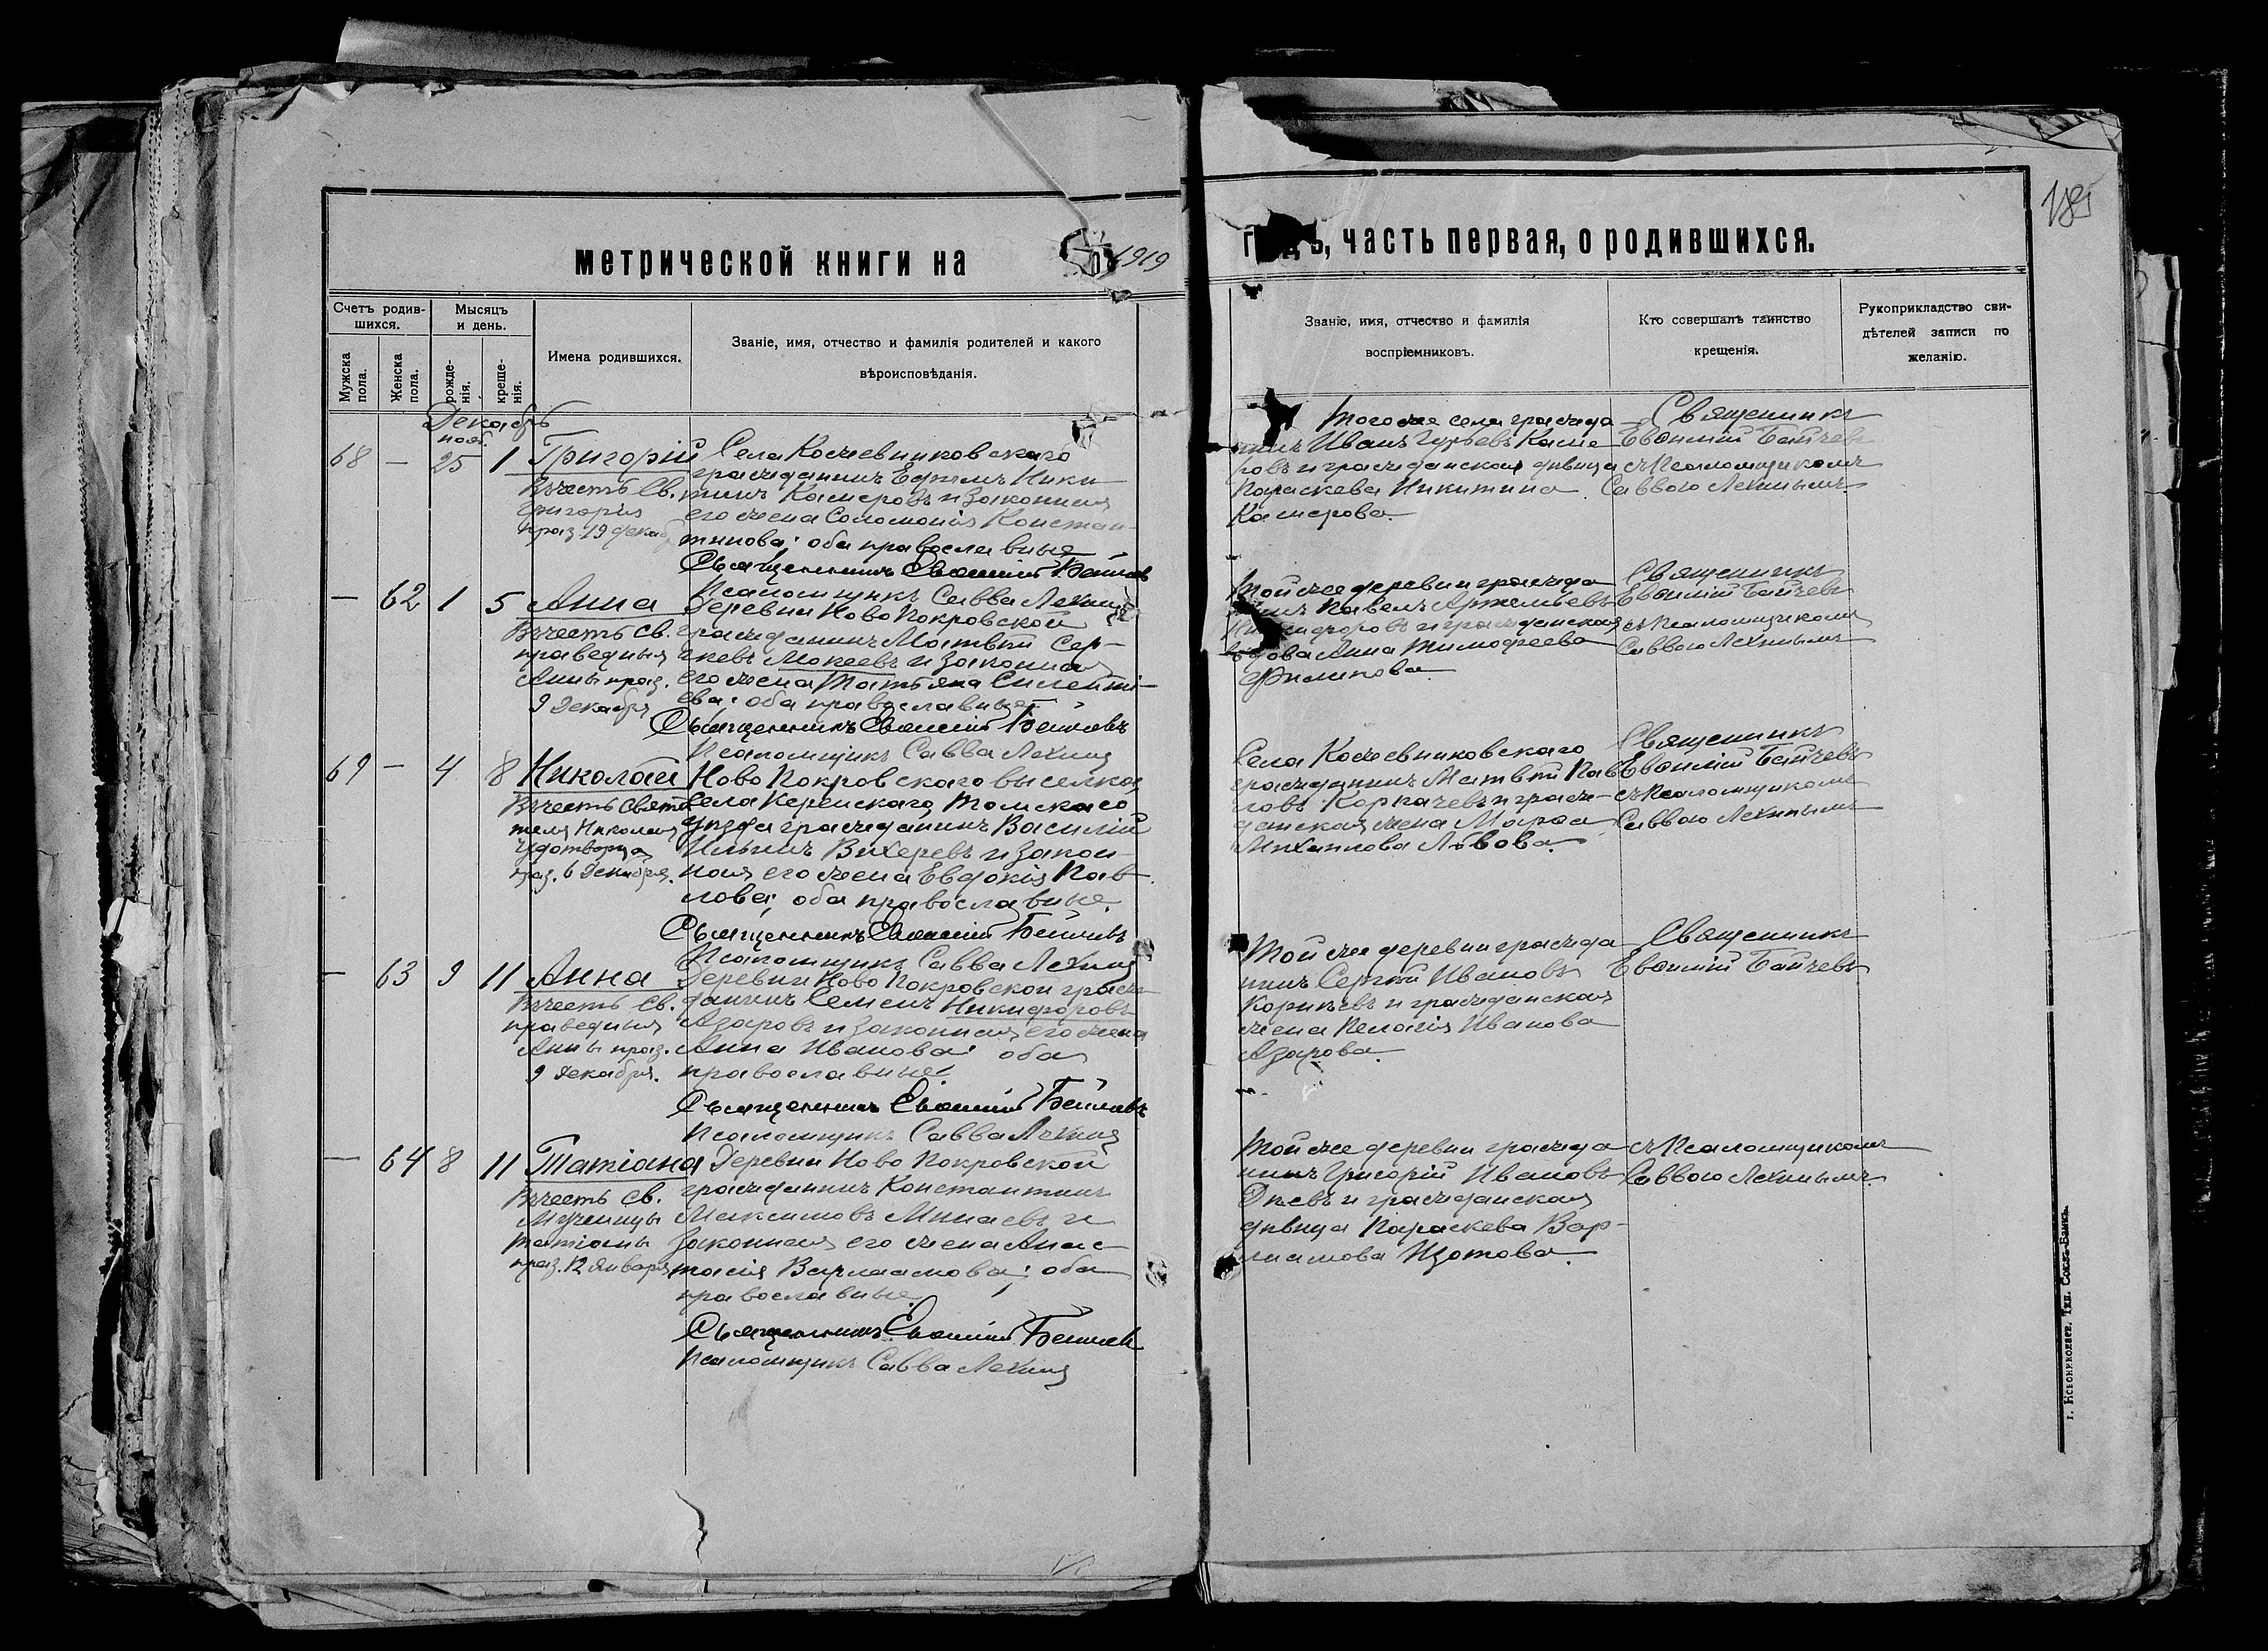 метрической книги на 1919
годъ, часть первая, о родившихся.
185
Счетъ родив-
шихся.
Мужска
пола.
Женска
пола.
Мѣсяцъ
и день.
рожде-
нія.
креще-
нія.
Имена родившихся.
Званіе, имя, отчество и фамилія родителей и какого
вѣроисповѣданія.
Званіе, имя, отчество и фамилія
воспріемниковъ.
Кто совершалъ таинство
крещенія.
Рукоприкладство сви-
дѣтелей записи по
желанію.
Декабрь
нояб.
68 — 25 1 Григорій
Въ честь Св.
Григорія
праз. 19 декаб.
Села Кожевниковскаго
гражданинъ Ефимъ Ники-
тинъ Камеровъ и законная
его жена Соломонія Констан-
тинова; оба православные
Священникъ Евѳимій
Псаломщикъ Савва Лехинъ
Того же села гражда-
нинъ Иванъ Гурьевъ Каме-
ровъ и гражданская дѣвица
Параскева Никитина
Камерова.
Священникъ
Евѳимій
съ Псаломщикомъ
Саввою Лехинымъ.
— 62 1 5 Анна
Въ честь Св.
праведныя
Анны праз.
9 декабря
Деревни Ново Покровской
гражданинъ Матвѣй Сер-
гѣевъ Мокеевъ и законная
его жена Татьяна Силенті-
ева; оба православные
Священникъ Евѳимій
Псаломщикъ Савва Лехинъ
Той же деревни гражда-
нинъ Павелъ Артемьевъ
Никифоровъ и гражданская
вдова Анна Тимофеева
Филипова.
Священникъ
Евѳимій
съ Псаломщикомъ
Саввою Лехинымъ
69 — 4 8 Николай
Въ честь Святи-
теля Николая
Чудотворца
праз. 6 декабря.
Ново Покровскаго выселка,
села Керейскаго, Томскаго
уѣзда гражданинъ Василій
Ильинъ Вихеревъ и закон-
ная его жена Евдокія Пав-
лова; оба православные.
Священникъ Евѳимій
Псаломщикъ Савва Лехинъ
Села Кожевниковскаго
гражданинъ Матвѣй Пав-
ловъ Корпачевъ и граж-
данская жена Марѳа
Михаилова Львова.
Священникъ
Евѳимій
съ Псаломщикомъ
Саввою Лехинымъ
— 63 9 11 Анна
Въ честь Св.
праведныя
Анны праз.
9 декабря.
Деревни Ново Покровской граж-
данинъ Семенъ Никифоровъ
Азаровъ и законная его жена
Анна Иванова; оба
православные.
Священникъ Евѳимій
Псаломщикъ Савва Лехинъ
Той же деревни гражда-
нинъ Сергѣй Ивановъ
Корнѣевъ и гражданская
жена Пелагія Иванова
Азарова.
Священникъ
Евѳимій
— 64 8 11 Татіана
Въ честь Св.
Мученицы
Татіаны
праз. 12 января
Деревни Ново Покровской
гражданинъ Константинъ
Максимовъ Минаевъ и
законная его жена Анас-
тасія Варлаамова; оба
православные.
Священникъ Евѳимій
Псаломщикъ Савва Лехинъ
Той же деревни гражда-
нинъ Григорій Ивановъ
и гражданская
дѣвица Параскева Вар-
лаамова Изотова.
съ Псаломщикомъ
Саввою Лехинымъ.
г. Нсвониколаев. Тип. Союз-Банкъ.